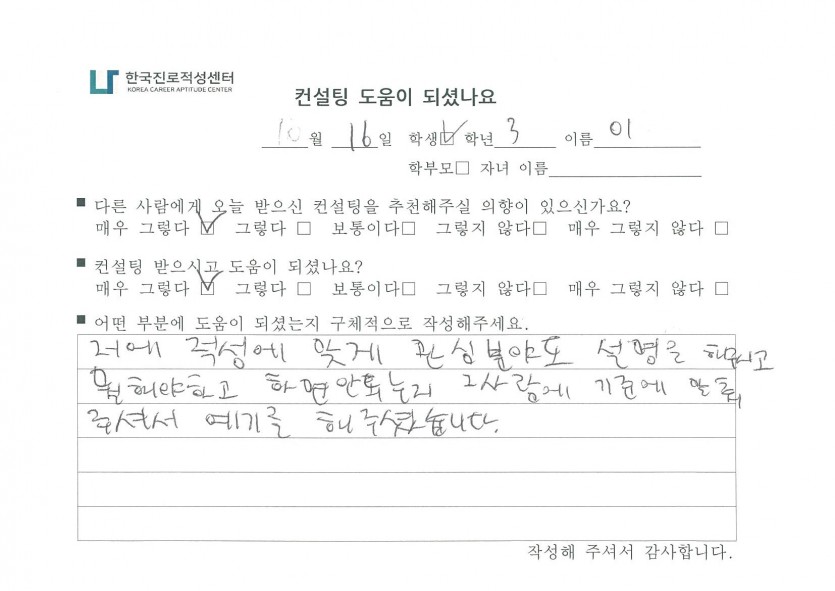 한국진로적성센터
KOREA CAREER APTITUDE CENTER
컨설팅 도움이 되셨나요
10월 16일 학생☑ 학년 3 이름 이
학부모□ 자녀 이름
■ 다른 사람에게 오늘 받으신 컨설팅을 추천해주실 의향이 있으신가요?
매우 그렇다 ☑ 그렇다 □ 보통이다□ 그렇지 않다□ 매우 그렇지 않다 □
■ 컨설팅 받으시고 도움이 되셨나요?
매우 그렇다 ☑ 그렇다 □ 보통이다□ 그렇지 않다□ 매우 그렇지 않다 □
■ 어떤 부분에 도움이 되셨는지 구체적으로 작성해주세요.
저에 적성에 맞게 관심분야도 설명을 해주시고
뭘해야하고 하면안되는지 그사람에 기준에 맞춰
주셔서 얘기를 해주셨습니다.
작성해 주셔서 감사합니다.